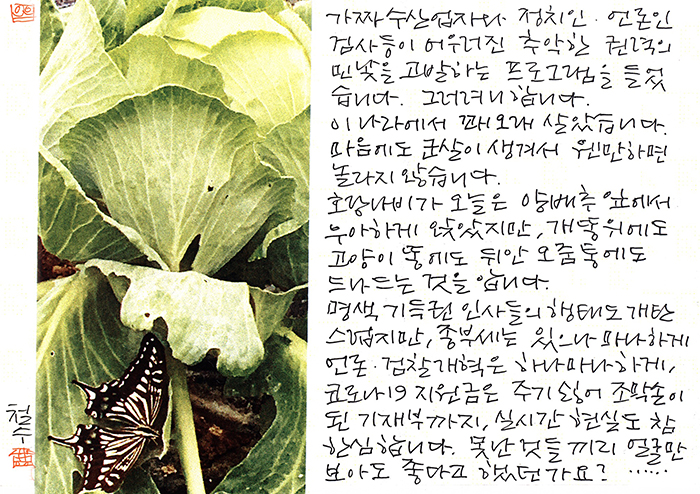 가짜 수산업자와 정치인·언론인
검사등이 어우러진 추악한 권력의
민낯을 고발하는 프로그램을 들었
습니다. 그러려니합니다.
이 나라에서 꽤 오래 살았습니다.
마음에도 군살이 생겨서 웬만하면
놀라지 않습니다.
호랑나비가 오늘은 양배추 앞에서
우아하게 앉았지만, 개똥위에도
고양이 똥에도 뒤안 오줌통에도
드나드는 것을 압니다.
명색 기득권 인사들의 행태도 개탄
스럽지만, 종부세는 있으나 마나하게
언론·검찰개혁은 하나마나 하게,
코로나19 지원금은 주기 싫어 조막손이
된 기재부까지, 실시간 현실도 참
한심합니다. 못난 것들 끼리 얼굴만
보아도 좋다고 했던가요? ……
철수